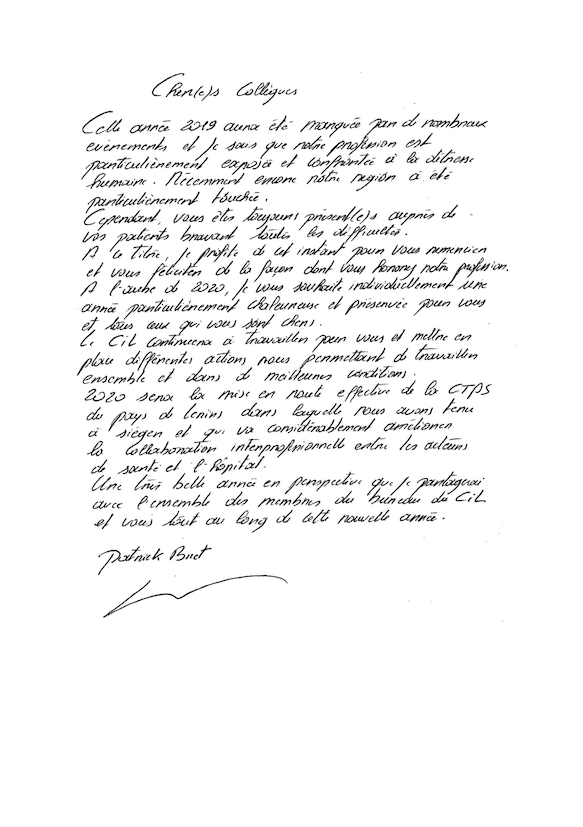 Cher(e)s Collègues
Cette année 2019 aura été marquée par de nombreux
évènements et je sais que notre profession est
particulièrement exposée et confrontée à la détresse
humaine. Récemment encore notre région a été
particulièrement touchée.
Cependant, vous êtes toujours présent(e)s auprès de
vos patients bravant toutes les difficultés.
A ce titre, je profite de cet instant pour vous remercier
et vous féliciter de la façon dont vous honorez notre profession.
A l'aube de 2020, je vous souhaite individuellement une
année particulièrement chaleureuse et préservée pour vous
et tous ceux qui vous sont chers.
Le CIL continuera à travailler pour vous et mettre en
place différentes actions nous permettant de travailler
ensemble et dans de meilleures conditions.
2020 sera la mise en route effective de la CTPS
du pays de Lérins dans laquelle nous avons tenu
à siéger et qui va considérablement améliorer
la collaboration interprofessionnelle entre les acteurs
de santé et l'hôpital.
Une très belle année en perspective que je partagerai
avec l'ensemble des membres du bureau du CIL
et vous tout au long de cette nouvelle année.
Patrick Bruet